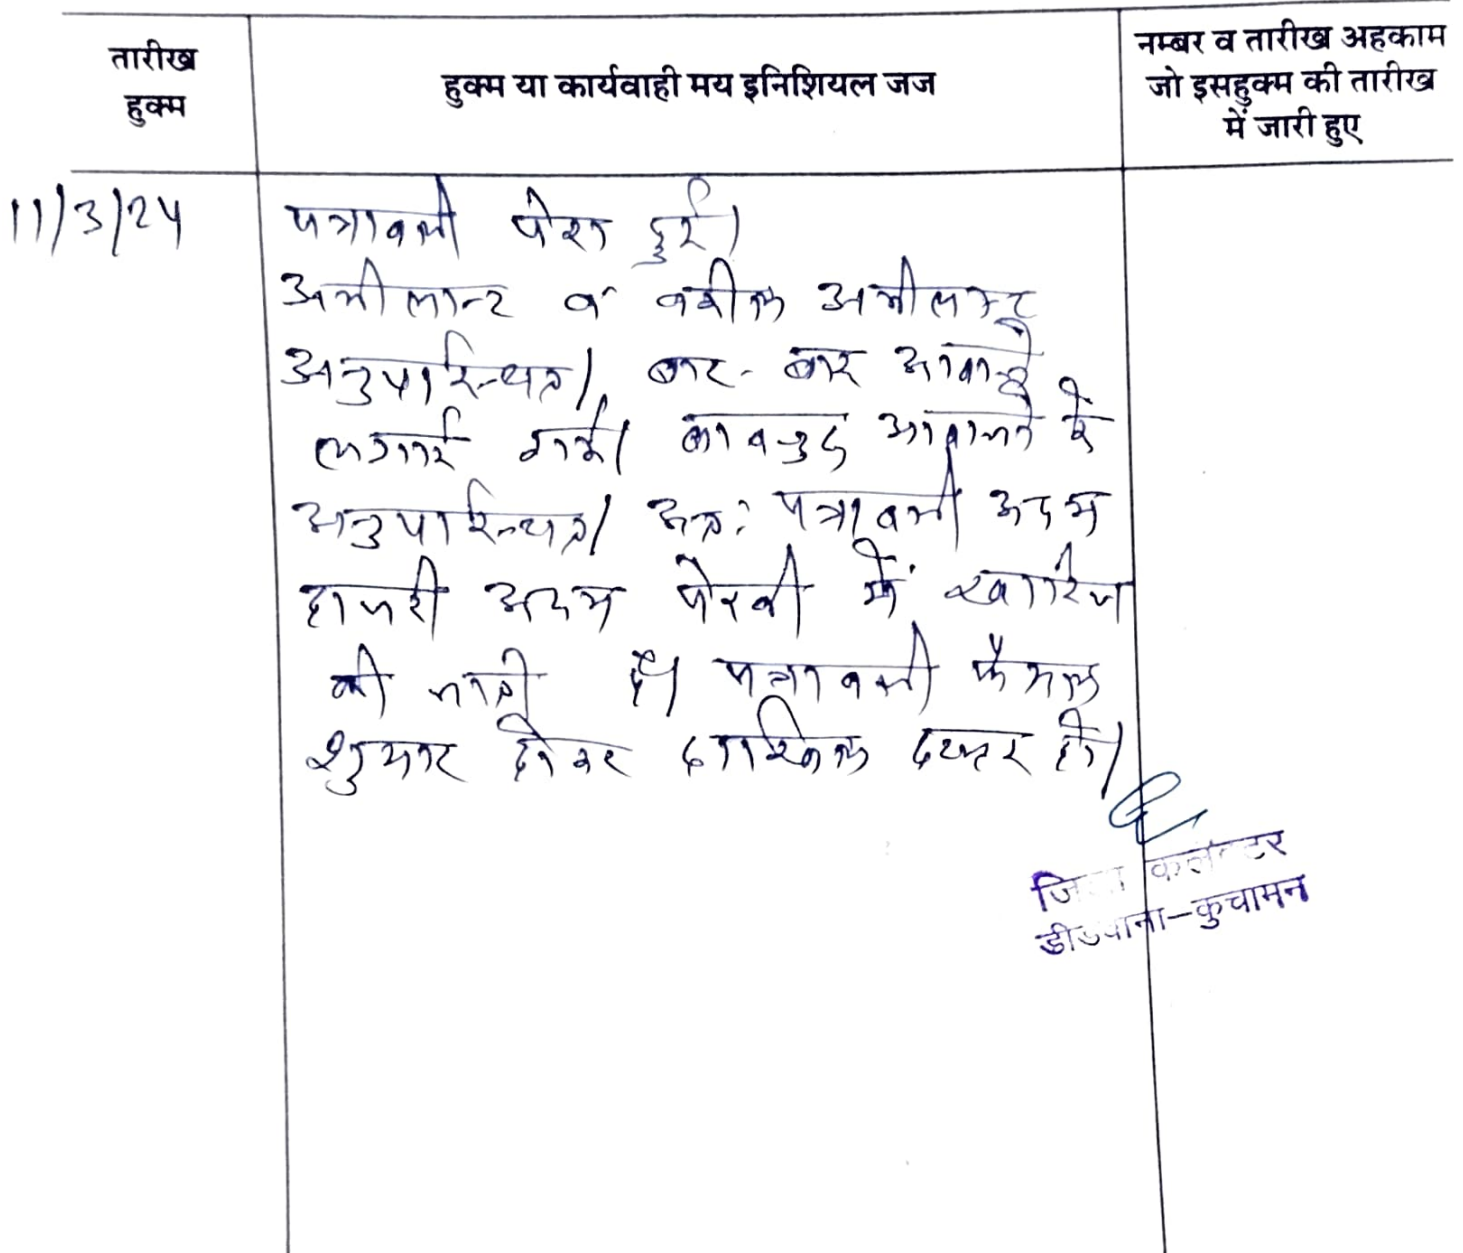 तारीख
हुक्म
हुक्म या कार्यवाही मय इनिशियल जज
नम्बर व तारीख अहकाम
जो इसहुक्म की तारीख
में जारी हुए
11/3/24
पत्रावली पेश हुई।
अपीलान्ट व वकील अपीलान्ट
अनुपस्थित। बार-बार आवाजें
लगाई गई। बावजुद आवाजों के
अनुपस्थित। अतः पत्रावली अदम
हाजरी अदम पेरवी में खारिज
की जाती है। पत्रावली फैसल
शुमार होकर दाखिल दफ्तर हो।
जिला कलेक्टर
डीडवाना-कुचामन